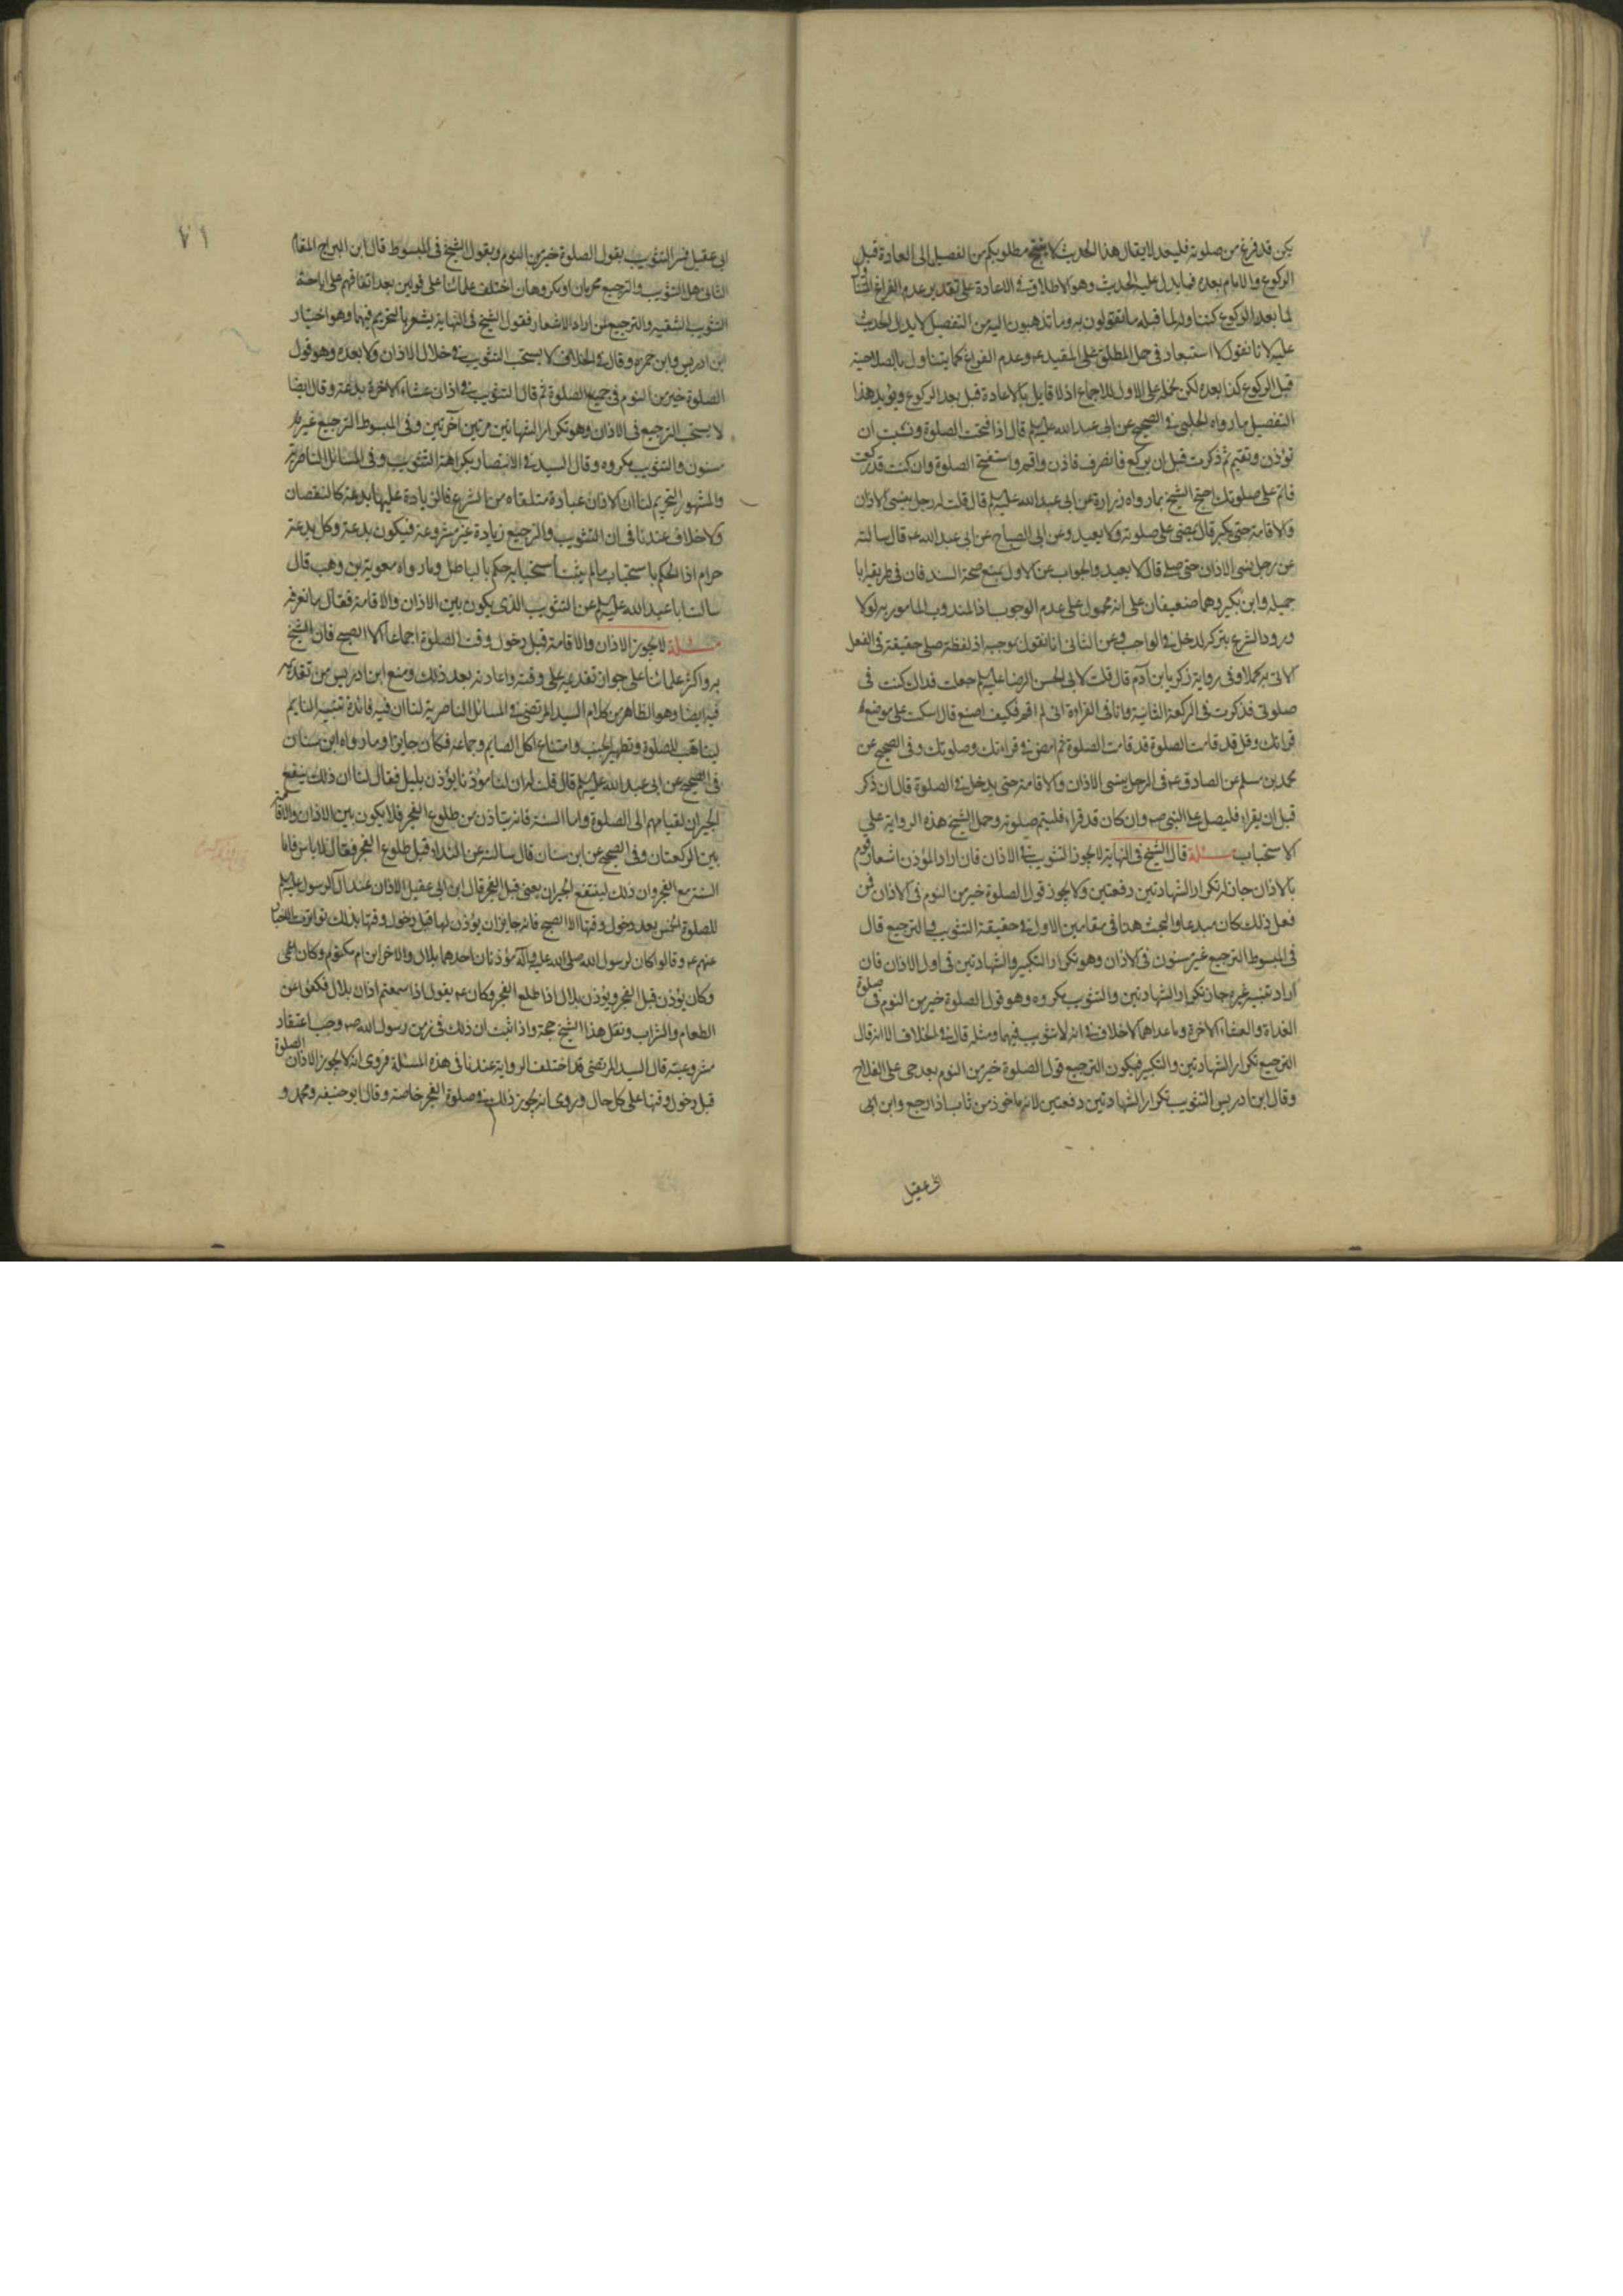 يكن قد فرغ من صلوته فليعد لايقال هذا الحديث لا ينتج مطلوبكم من التفصيل الى العادة قبل
الركوع والاتمام بعده فما يدل عليه الحديث وهو الاطلاق في الاعادة على تقدير عدم الفراغ
لما بعد الركوع كتناوله لما قبله ما تقولون به وما تذهبون اليه من التفصيل لا يدل الحديث
عليه لانا نقول لا استبعاد في حمل المطلق على المقيد وعدم الفراغ كما يتناول بالصلاحية
قبل الركوع كذا بعده لكن نحمله على الاول للاجماع اذ لا قايل بالاعادة قبل بعد الركوع ويؤيد هذا
التفصيل ما رواه الحلبي في الصحيح عن ابي عبد الله عليه السلم قال اذا افتتحت الصلوة ونسيت ان
تؤذن وتقيم ثم ذكرت قبل ان تركع فانصرف فاذن واقم واستفتح الصلوة وان كنت قد ركعت
فاتم على صلوتك احتج الشيخ بما رواه زرارة عن ابي عبد الله عليه السلم قال قلت له رجل ينسى الاذان
والاقامة حتى يكبر قال يمضي على صلوته ولا يعيد وعن ابي الصباح عن ابي عبد الله ع قال سالته
عن رجل ينسى الاذان حتى صلى قال لا يعيد والجواب عن الاول بمنع صحة السند فان في طريقه ابا
جميلة وابن بكير وهما ضعيفان على انه محمول على عدم الوجوب اذ المندوب المامور به لولا
ورود الشرع بتركه لدخل في الواجب وعن الثاني انا نقول بموجبه اذ لفظة صلى حقيقة في الفعل
الاتي به كملا وفي رواية زكريا بن آدم قال قلت لابي الحسن الرضا عليه السلم جعلت فداك كنت في
صلوتي فذكرت في الركعة الثانية وانا في القراءة اني لم اقم فكيف اصنع قال اسكت على موضع
قراتك وقل قد قامت الصلوة قد قامت الصلوة ثم امض في قراءتك وصلوتك وفي الصحيح عن
محمد بن مسلم عن الصادق ع في الرجل ينسى الاذان والاقامة حتى يدخل في الصلوة قال ان ذكر
قبل ان يقراء فليصل على النبي ص وان كان قد قراء فليتم صلوته وحمل الشيخ هذه الرواية على
الاستحباب مسئلة قال الشيخ في النهاية لا يجوز التثويب في الاذان فان اراد المؤذن اشعار قوم
بالاذان جاز له تكرار الشهادتين دفعتين ولا يجوز قول الصلوة خير من النوم في الاذان فمن
فعل ذلك كان مبدعا والبحث هنا في مقامين الاول في حقيقة التثويب والترجيع قال
في المبسوط الترجيع غير مسنون في الاذان وهو تكرار التكبير والشهادتين في اول الاذان فان
اراد تنبيه غيره جاز تكرار الشهادتين والتثويب مكروه وهو قول الصلوة خير من النوم في صلوة
الغداة والعشاء الاخرة وما عداهما لا خلاف في انه لا تثويب فيهما ومثله قال في الخلاف الا انه قال
الترجيع تكرار الشهادتين والتكبير فيكون الترجيع قول الصلوة خير من النوم بعد حي على الفلاح
وقال ابن ادريس التثويب تكرار الشهادتين دفعتين لانه ماخوذ من ثاب اذا رجع وابن ابي
ابي عقيل
٧١
ابي عقيل فسر التثويب بقول الصلوة خير من النوم وبقول الشيخ في المبسوط قال ابن البراج المقام
الثاني هل التثويب والترجيع محرمان او مكروهان اختلف علمائنا على قولين بعد اتفاقهم على اباحة
التثويب للتقية والترجيع لمن اراد الاشعار فقول الشيخ في النهاية يشعر بالتحريم فيهما وهو اختيار
ابن ادريس وابن حمزة وقال في الخلاف لا يستحب التثويب في خلال الاذان ولا بعده وهو قول
الصلوة خير من النوم في جميع الصلوة ثم قال التثويب في اذان عشاء الاخرة بدعة وقال ايضا
لا يستحب الترجيع في الاذان وهو تكرار الشهادتين مرتين اخرتين وفي المبسوط الترجيع غير
مسنون والتثويب مكروه وقال السيد في الانتصار بكراهة التثويب وفي المسائل الناصرية
والمشهور التحريم لنا ان الاذان عبادة متلقاه من الشرع فالزيادة عليها بدعة كالنقصان
ولا خلاف عندنا في ان التثويب والترجيع زيادة غير مشروعة فيكون بدعة وكل بدعة
حرام اذ الحكم باستحباب ما لم يثبت استحبابه حكم بالباطل وما رواه معوية بن وهب قال
سالت ابا عبد الله عليه السلم عن التثويب الذي يكون بين الاذان والاقامة فقال ما نعرفه
مسئلة لا يجوز الاذان والاقامة قبل دخول وقت الصلوة اجماعا الا الصبح فان الشيخ
واكثر علمائنا على جواز تقديمه على وقته واعادته بعد ذلك ومنع ابن ادريس من تقديمه
فيه ايضا وهو الظاهر من كلام السيد المرتضى في المسائل الناصرية لنا ان فيه فائدة تنبيه النايم
ليتاهب للصلوة وتطهير الجنب وامتناع اكل الصايم وجماعه فكان جايزا وما رواه ابن سنان
في الصحيح عن ابي عبد الله عليه السلم قال قلت له ان لنا مؤذنا يؤذن بليل فقال لنا ان ذلك ينفع
الجيران لقيامهم الى الصلوة واما السنة فانه يتاذن من طلوع الفجر فلا يكون بين الاذان والاقامة
بين الركعتان وفي الصحيح عن ابن سنان قال سالته عن النداء قبل طلوع الفجر فقال لا باس فاما
السنة مع الفجر وان ذلك لينفع الجيران يعني قبل الفجر قال ابن ابي عقيل الاذان عند آل الرسول عليهم السلم
للصلوة الخمس بعد دخول وقتها الا الصبح فانه جايز ان يؤذن لها قبل دخول وقتها بذلك تواترت الاخبار
عنهم ع وقالوا كان لرسول الله صلى الله عليه وآله مؤذنان احدهما بلال والاخر ابن ام مكتوم وكان اعمى
وكان يؤذن قبل الفجر ويؤذن بلال اذا طلع الفجر وكان ع يقول اذا سمعتم اذان بلال فكفوا عن
الطعام والشراب ونقل هذا الشيخ حجة واذا ثبت ان ذلك في زمن رسول الله ص وجب اعتقاد
مشروعيته قال السيد المرتضى قد اختلفت الرواية عندنا في هذه المسئلة فروى انه لا يجوز الاذان الصلوة
قبل دخول وقتها على كل حال وروى انه يجوز ذلك في صلوة الفجر خاصة وقال ابو حنيفه ومحمد و